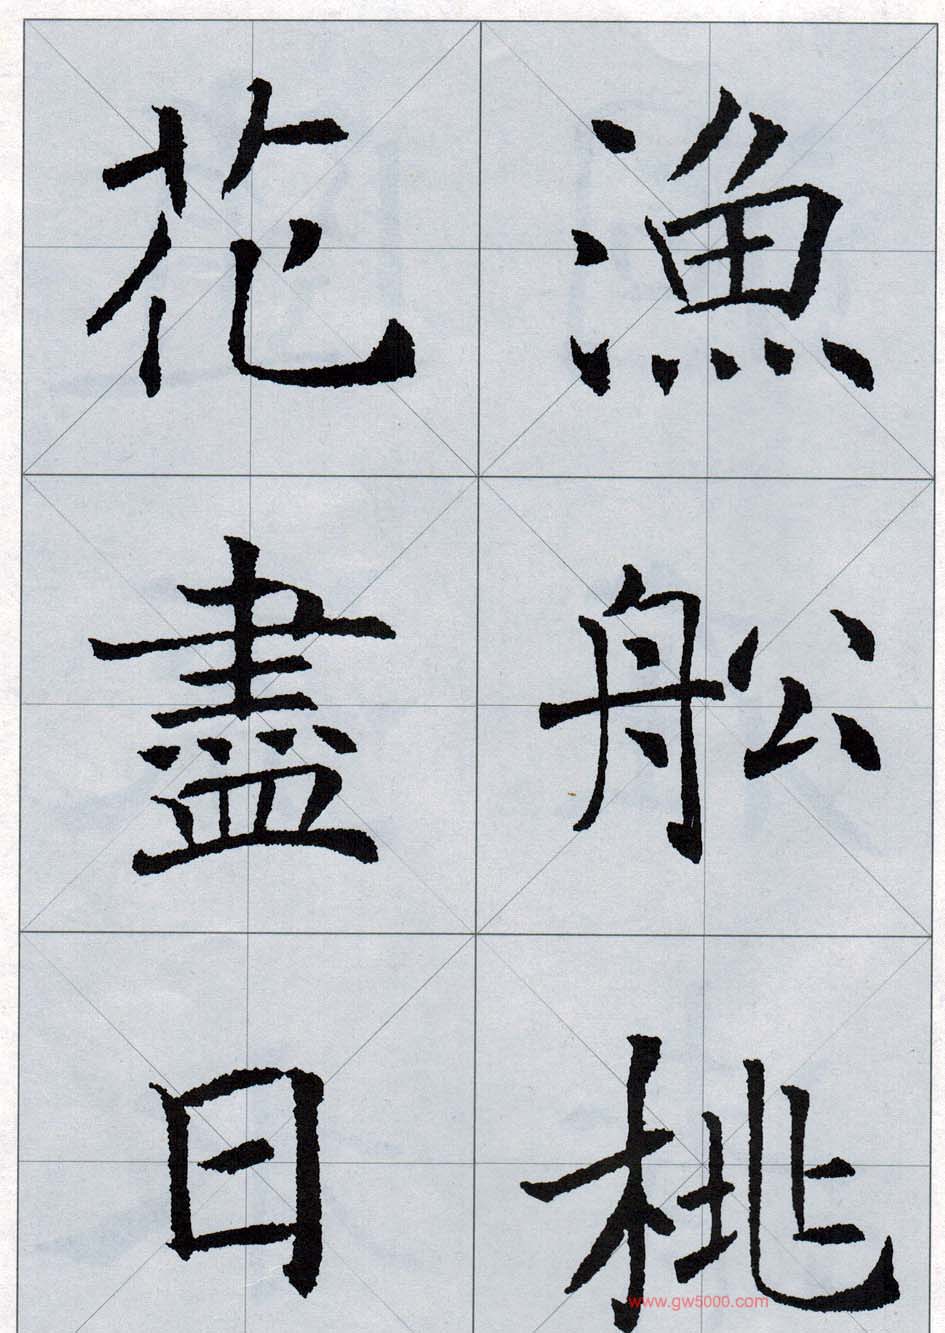 漁舩桃
花盡日
www.gw5000.com